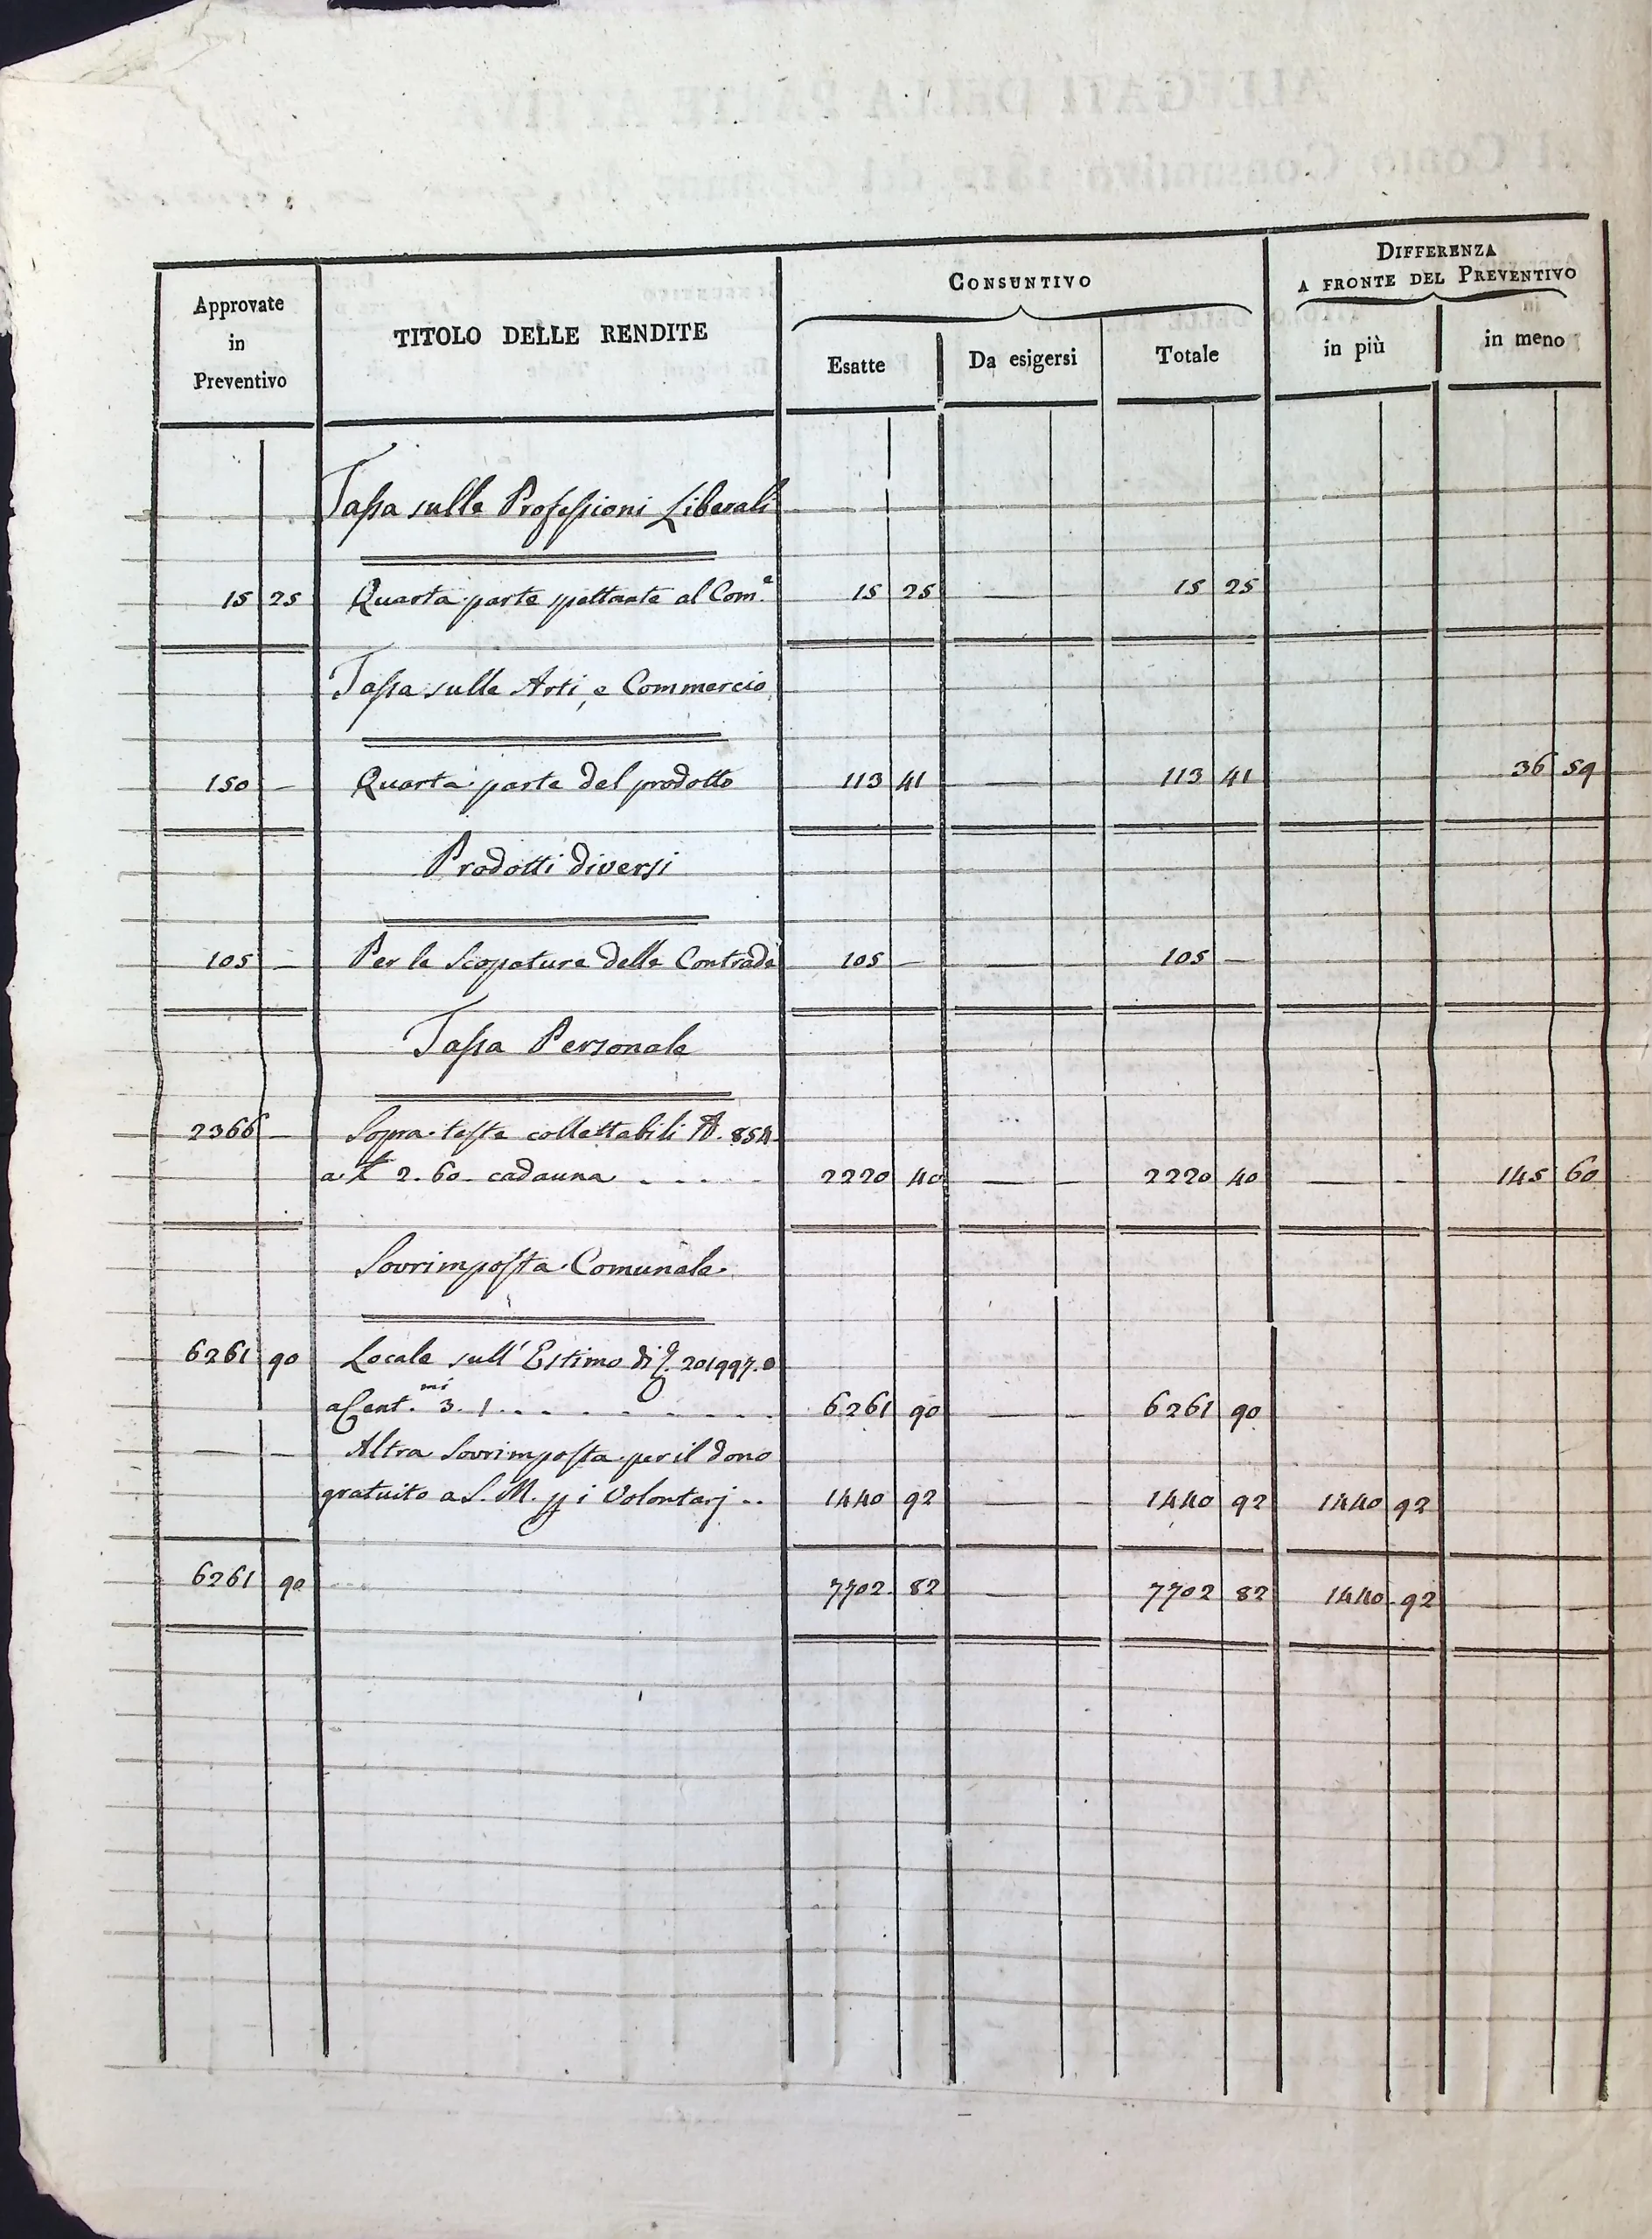 Approvate in Preventivo
TITOLO DELLE RENDITE
CONSUNTIVO
DIFFERENZA A FRONTE DEL PREVENTIVO
Esatte Da esigersi Totale in più in meno
Tassa sulle Professioni Liberali
15 25 Quarta parte spettante al Com.e 15 25 — 15 25
Tassa sulle Arti, e Commercio
150 — Quarta parte del prodotto 113 41 — — 113 41 36 59
Prodotti diversi
105 — Per le Scopature delle Contrade 105 — — 105 —
Tassa Personale
2366 — Sopra teste collettabili N. 854
a £ 2. 60. cadauna . . . . . 2220 40 — — 2220 40 — - 145 60
Sovrimposta Comunale.
6261 90 Locale sull' Estimo di 201997. 0
a Cent.mi 3. 1 . . . . . . . . 6261 90 — — 6261 90
— — Altra Sovrimposta per il dono
gratuito a S. M. pp i Volontarj .. 1440 92 — — 1440 92 1440 92
6261 90 ... 7702 82 — — 7702 82 1440 92 — —